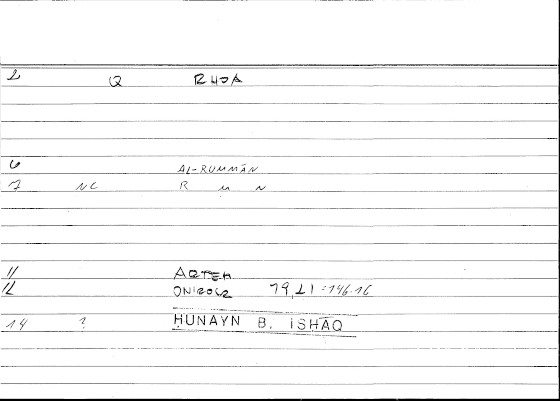 2 Q RHOA
6 AL-RUMMĀN
7 NC R M N
11 ARTEM
12 ONIROCR 79,21=146.16
14 ? ḤUNAYN B. ISḤĀQ